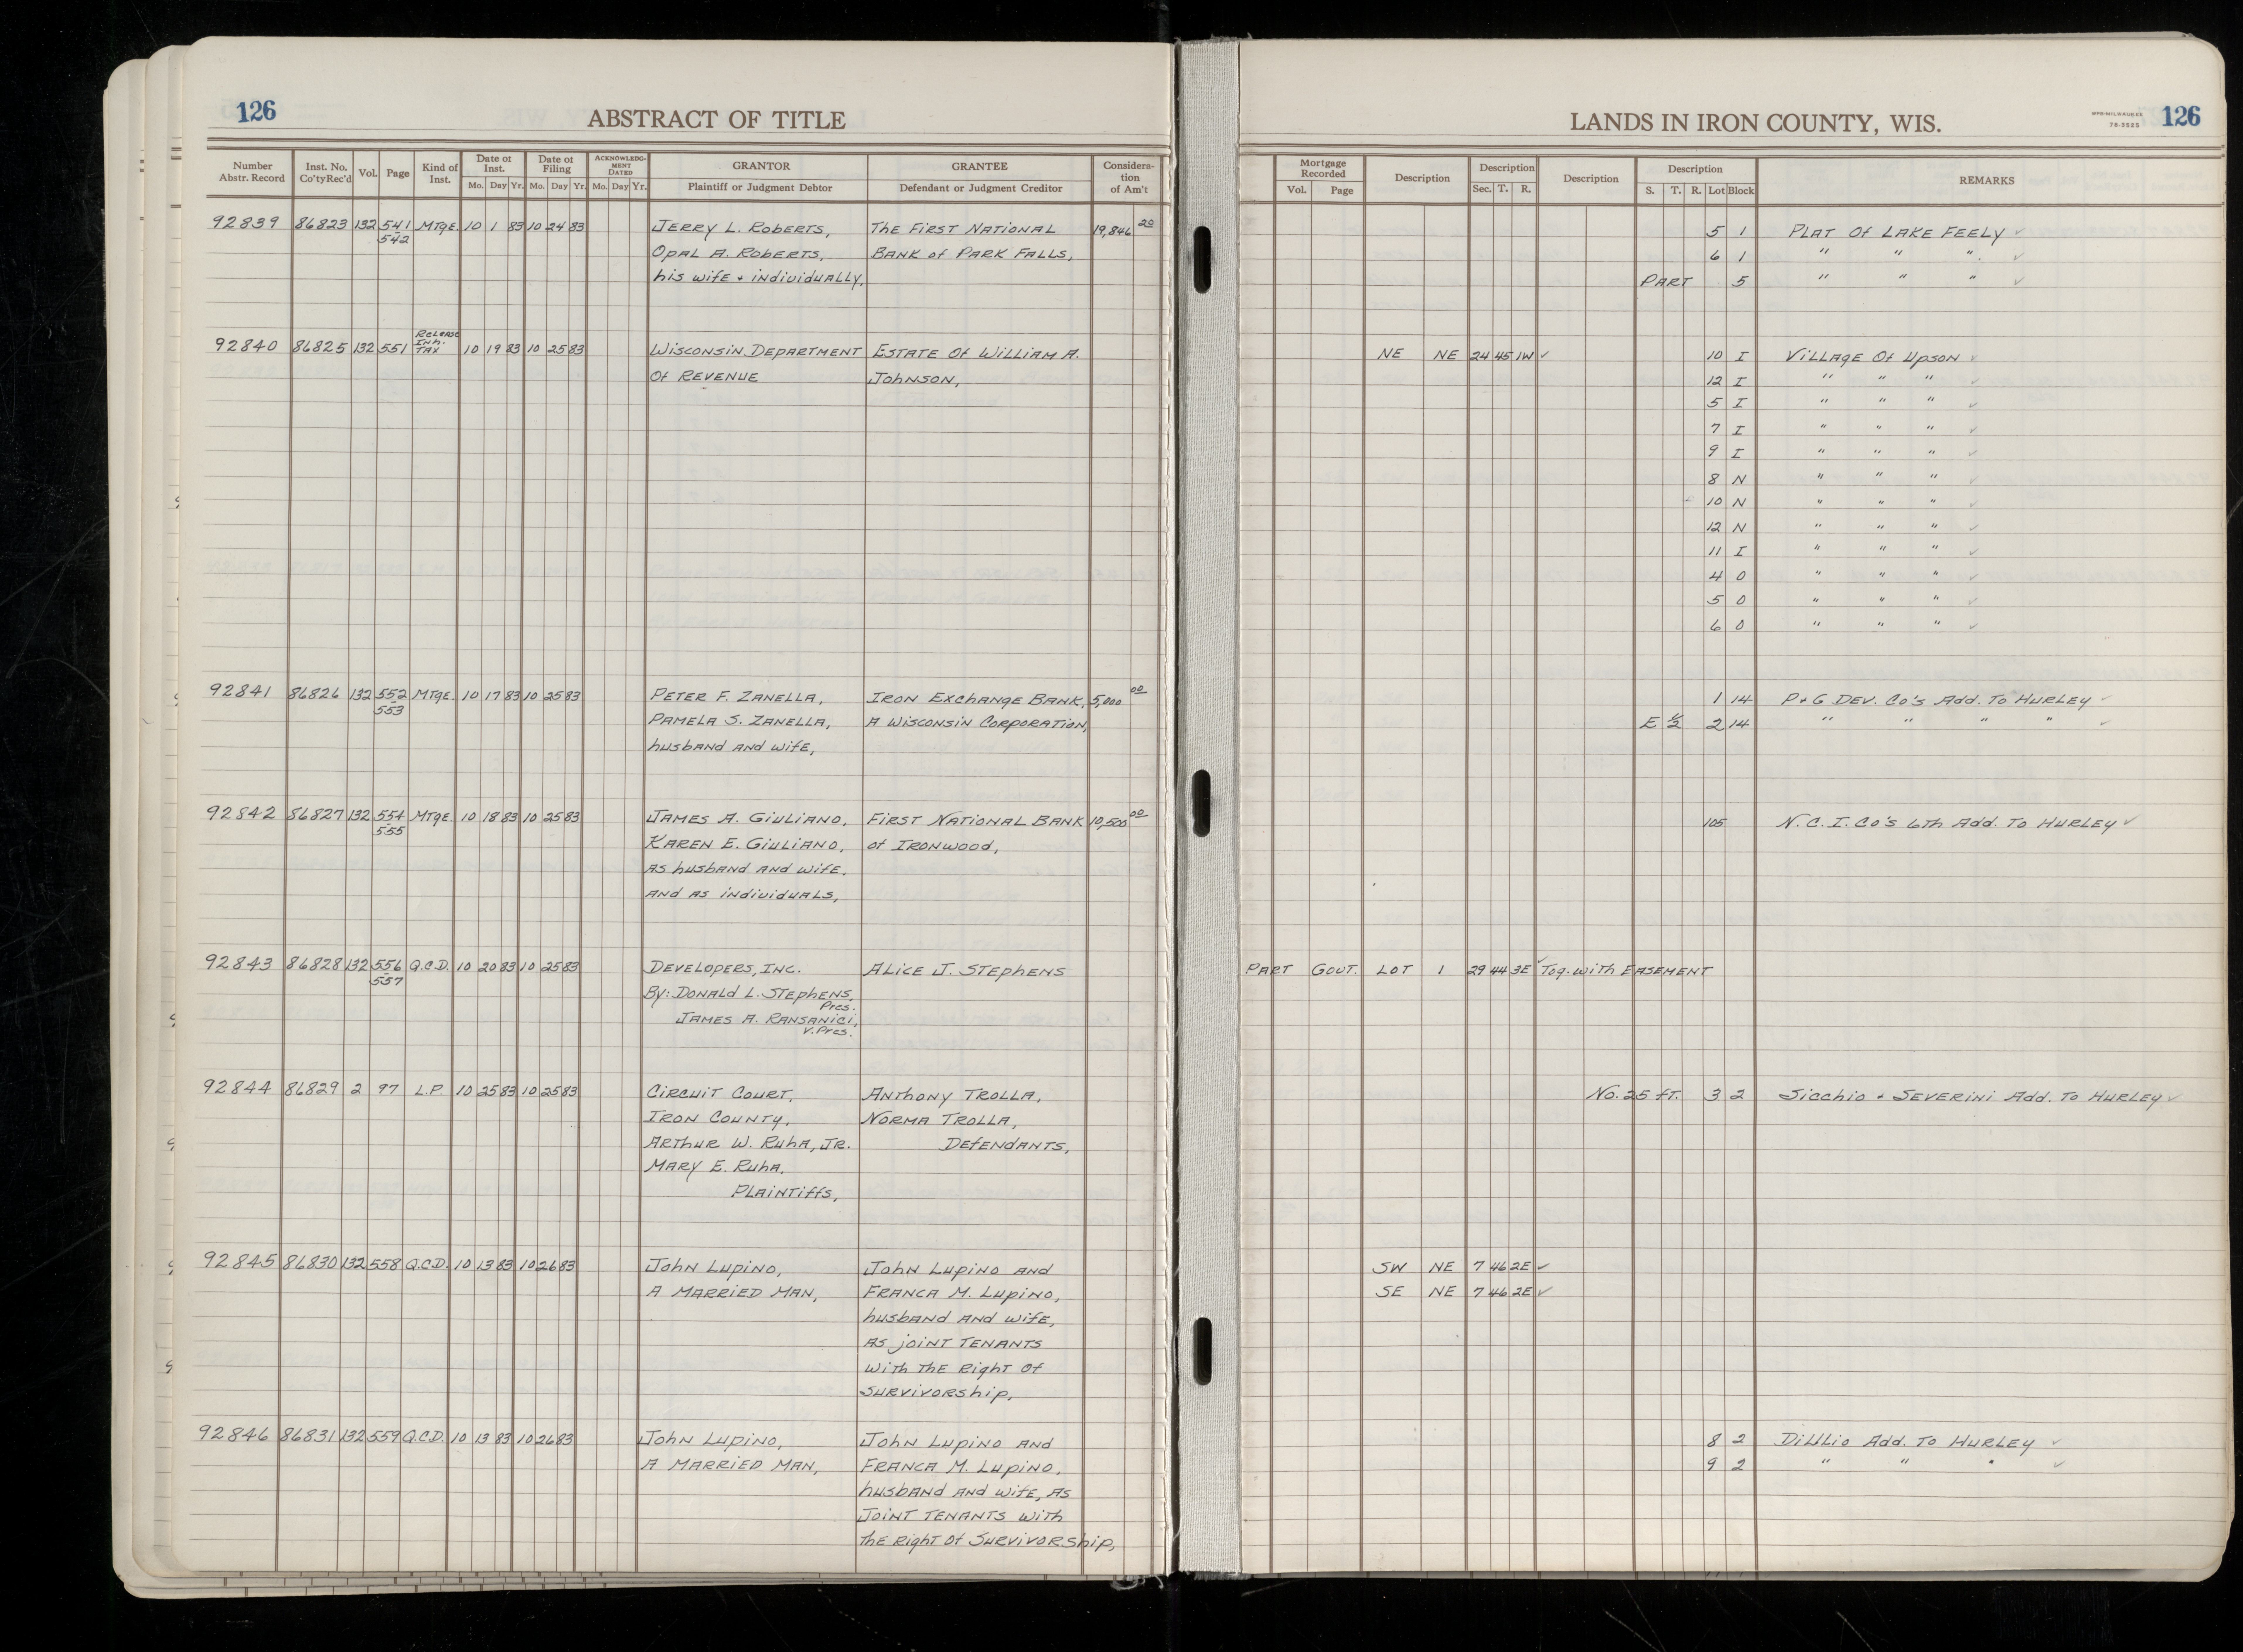 126
ABSTRACT OF TITLE
Number Abstr. Record | Inst. No. Co'ty Rec'd | Vol. | Page | Kind of Inst. | Date of Inst. Mo. Day Yr. | Date of Filing Mo. Day Yr. | ACKNOWLEDGMENT DATED Mo. Day Yr. | GRANTOR Plaintiff or Judgment Debtor | GRANTEE Defendant or Judgment Creditor | Consideration of Am't
92839 86823 132 541 MTgE. 10 1 83 10 24 83 JERRY L. ROBERTS, THE FIRST NATIONAL 19,846 20
542 OPAL A. ROBERTS, BANK of PARK FALLS,
his wife + individually,
92840 86825 132 551 Release Inh. TAX 10 19 83 10 25 83 WISCONSIN DEPARTMENT ESTATE Of WILLIAM A.
Of REVENUE JOHNSON,
92841 86826 132 552 MTgE. 10 17 83 10 25 83 PETER F. ZANELLA, IRON EXCHANGE BANK, 5,000 00
553 PAMELA S. ZANELLA, A WISCONSIN CORPORATION,
husband AND wife,
92842 86827 132 554 MTgE. 10 18 83 10 25 83 JAMES A. GIULIANO, FIRST NATIONAL BANK 10,500 00
555 KAREN E. GIULIANO, of IRONWOOD,
AS husband AND wife,
AND AS individuals,
92843 86828 132 556 Q.C.D. 10 20 83 10 25 83 DEVELOPERS, INC. ALICE J. STEPHENS
557 By: DONALD L. STEPHENS,
Pres.
JAMES A. RANSANICI,
V. Pres.
92844 86829 2 97 L.P. 10 25 83 10 25 83 CIRCUIT COURT, ANTHONY TROLLA,
IRON COUNTY, NORMA TROLLA,
ARTHUR W. RUHA, JR. DEFENDANTS,
MARY E. RUHA,
PLAINTIFFS,
92845 86830 132 558 Q.C.D. 10 13 83 10 26 83 JOHN LUPINO, JOHN LUPINO AND
A MARRIED MAN, FRANCA M. LUPINO,
husband AND wife,
AS joint TENANTS
with THE RIGHT Of
SURVIVORSHIP,
92846 86831 132 559 Q.C.D. 10 13 83 10 26 83 JOHN LUPINO, JOHN LUPINO AND
A MARRIED MAN, FRANCA M. LUPINO,
husband AND wife, AS
JOINT TENANTS with
THE RIGHT Of SURVIVORSHIP,
LANDS IN IRON COUNTY, WIS.
126
Mortgage Recorded Vol. Page | Description | Description Sec. T. R. | Description | Description S. T. R. Lot Block | REMARKS
5 1 PLAT Of LAKE FEELY ✓
6 1 " " " ✓
PART 5 " " " ✓
NE NE 24 45 1W ✓ 10 I VILLAGE Of UPSON ✓
12 I " " " ✓
5 I " " " ✓
7 I " " " ✓
9 I " " " ✓
8 N " " " ✓
10 N " " " ✓
12 N " " " ✓
11 I " " " ✓
4 O " " " ✓
5 O " " " ✓
6 O " " " ✓
1 14 P+G DEV. CO'S ADD. TO HURLEY ✓
E ½ 2 14 " " " " ✓
105 N.C.I. CO'S 6TH ADD. TO HURLEY ✓
PART GOVT. LOT 1 29 44 3E ✓ Tog. with EASEMENT
No. 25 fT. 3 2 Sicchio + SEVERINI ADD. TO HURLEY ✓
SW NE 7 46 2E ✓
SE NE 7 46 2E ✓
8 2 DiUlio ADD. TO HURLEY ✓
9 2 " " " ✓